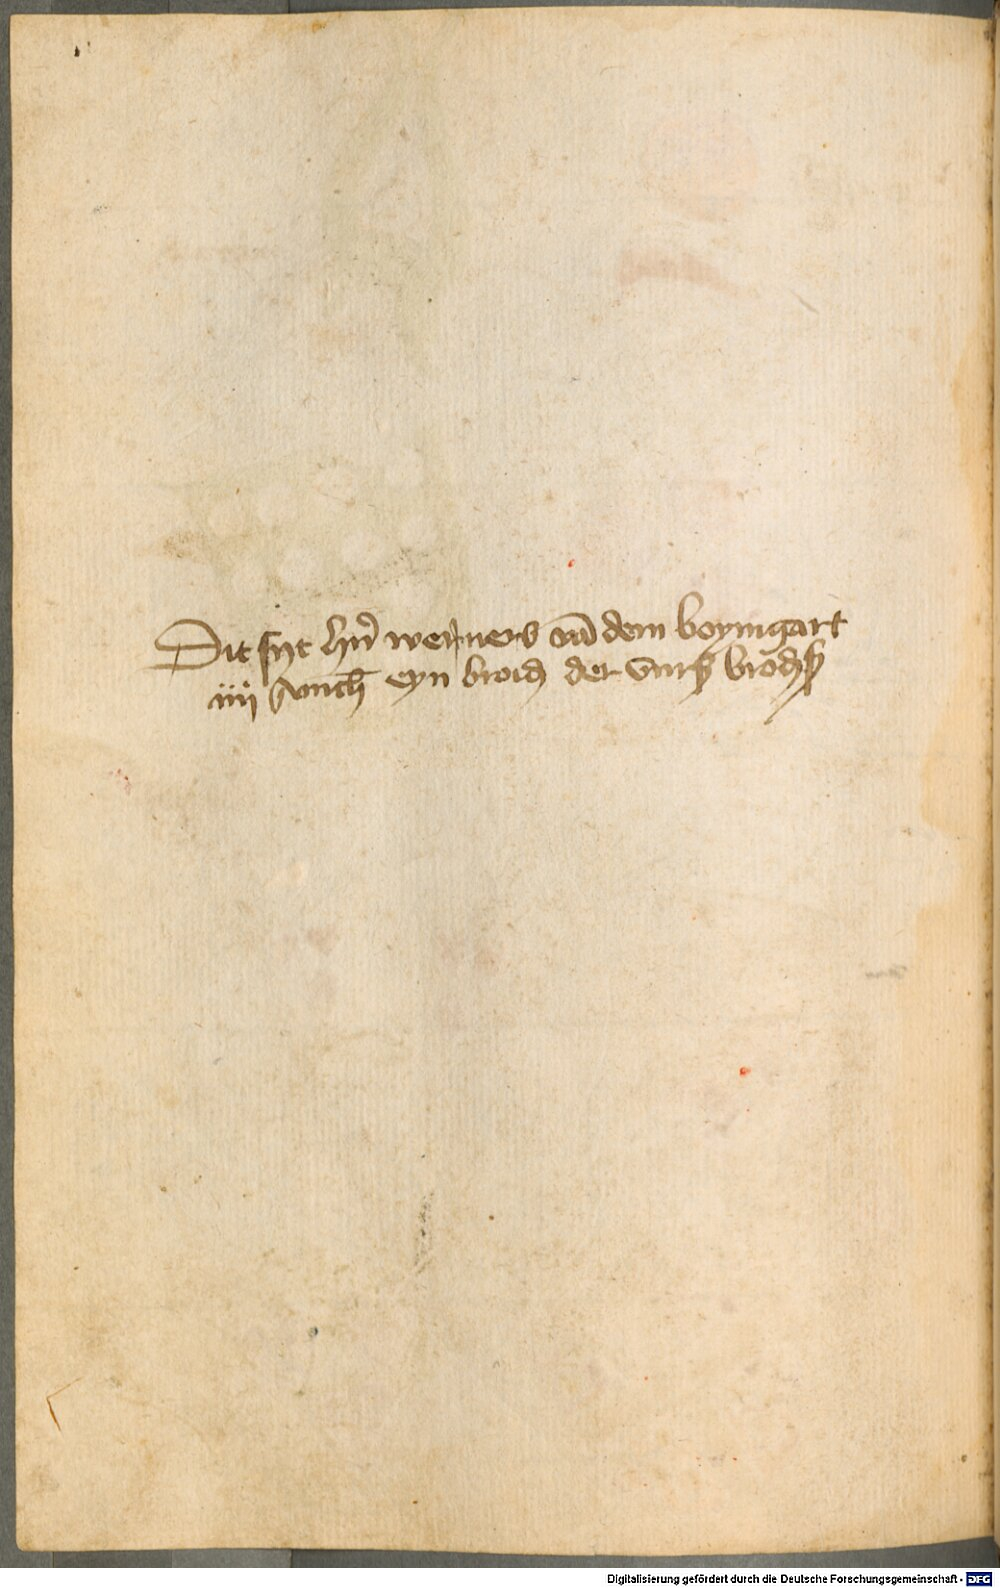 Dit synt hrn̄ werners vā dem boymgart
iiij eyn broich der vurß
Digitalisierung gefördert durch die Deutsche Forschungsgemeinschaft - DFG